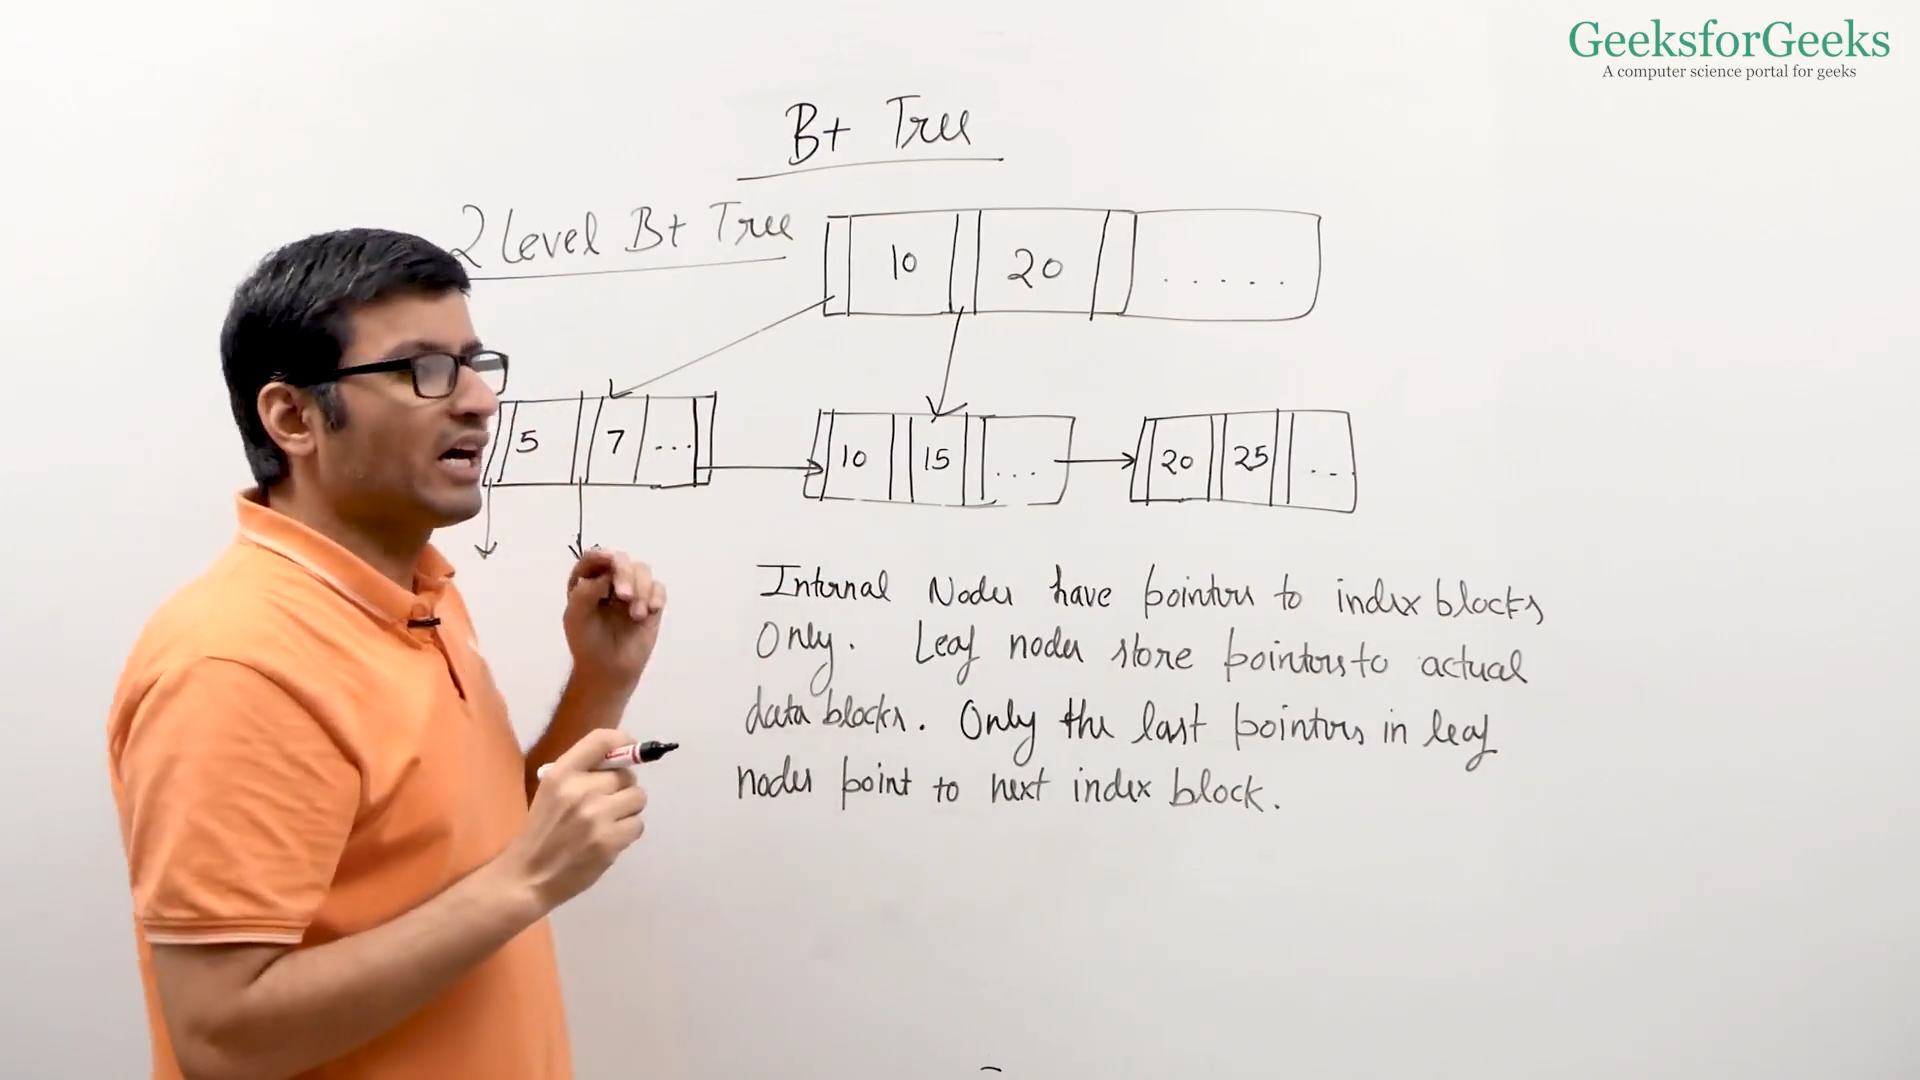 GeeksforGeeks
A computer science portal for geeks
B+ Tree
2 Level B+ Tree
10 20 ......
5 7 ...
10 15 ...
20 25 ...
Internal Nodes have pointers to index blocks
Only. Leaf nodes store pointers to actual
data blocks. Only the last pointers in leaf
nodes point to next index block.